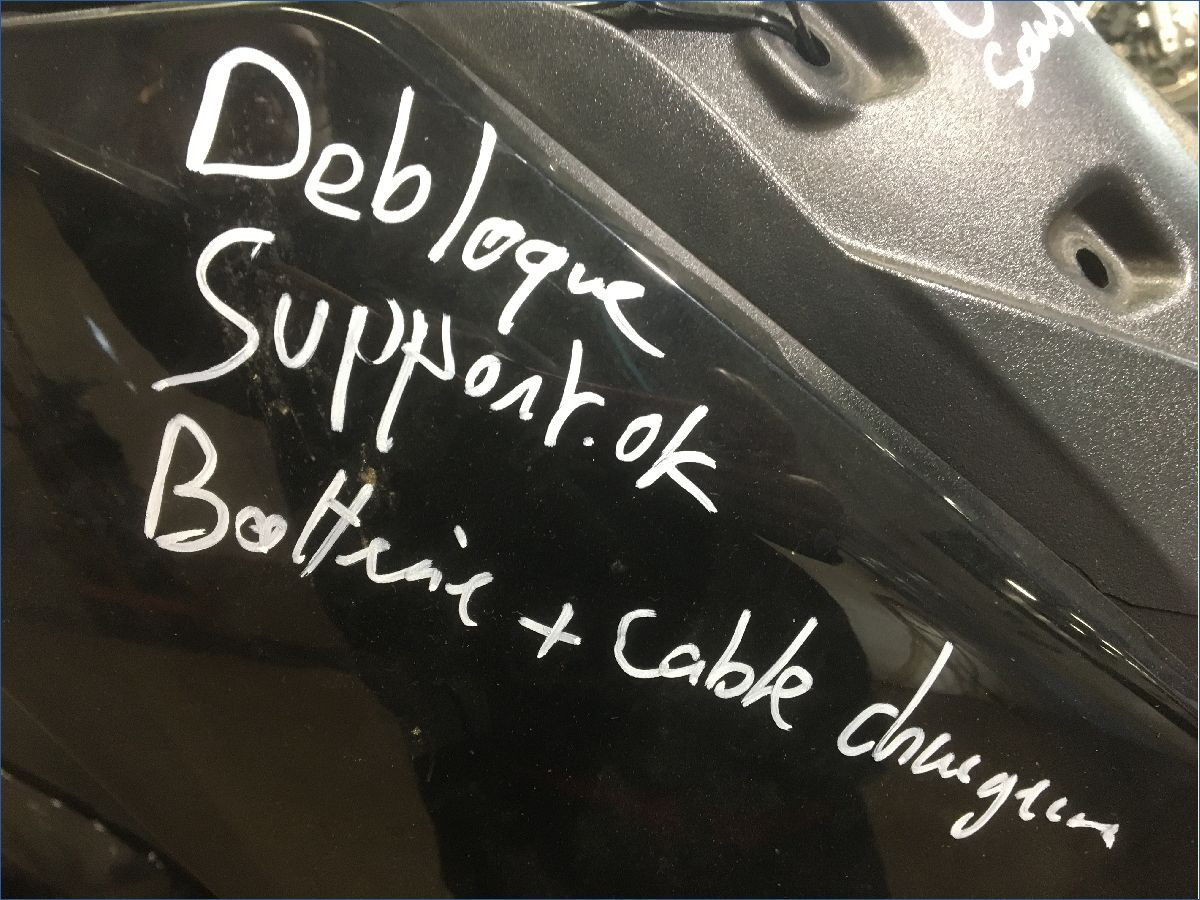 Debloque
Support. ok
Batterie + cable chargeur